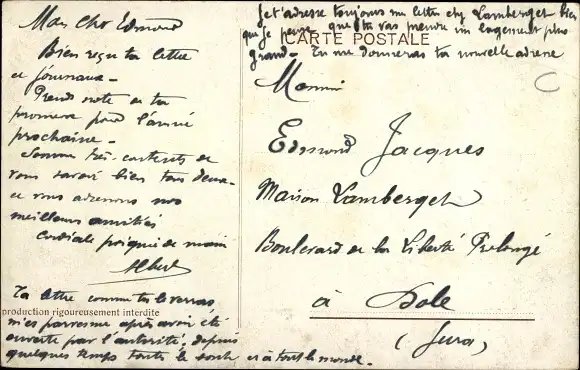 Mon cher Edmond
Bien reçu ta lettre
et journaux -
Prends note de ta
promesse pour l'année
prochaine -
Sommes très contents de
vous savoir bien tous deux -
et vous adressons nos
meilleurs amitiés
Cordiale poignée de main
Albert
Ta lettre comme tu le verras
m'est parvenue après avoir été
ouverte par l'autorité, depuis
quelques temps toutes le sont et à tout le monde.
production rigoureusement interdite
Je t'adresse toujours ma lettre chez Lamberget bien
que je pense que tu vas prendre un logement plus
grand - Tu me donneras ta nouvelle adresse
CARTE POSTALE
Monsieur
Edmond Jacques
Maison Lamberget
Boulevard de la Liberté Prolongé
à Dole
(Jura)